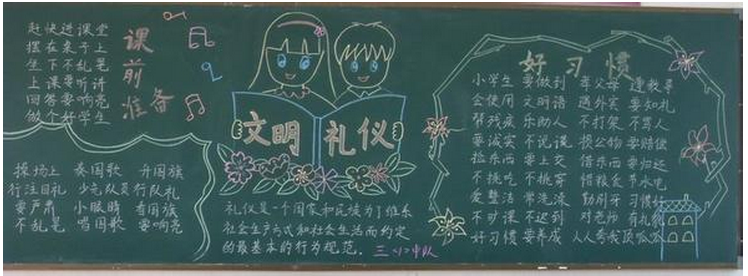 赶快进课堂
摆在桌子上
坐下不乱笔
上课要听讲
回答要响亮
做个好学生
课前准备
操场上 奏国歌 升国旗
行注目礼 少先队员行队礼
要严肃 小眼睛 看国旗
不乱笔 唱国歌 要响亮
文明礼仪
礼仪是一个国家和民族为了维系
社会生产方式和社会生活而约定
的最基本的行为规范。
三〈1〉中队
好习惯
小学生 要做到 孝父母 遵教导
会使用 文明语 遇外宾 要知礼
帮残疾 乐助人 不打架 不骂人
要诚实 不说谎 损公物 要赔偿
捡东西 要上交 借东西 要归还
不挑吃 不挑穿 惜粮食 节水电
爱整洁 常洗澡 勤刷牙 习惯好
不旷课 不迟到 对老师 有礼貌
好习惯 要养成 人人夸我顶呱呱